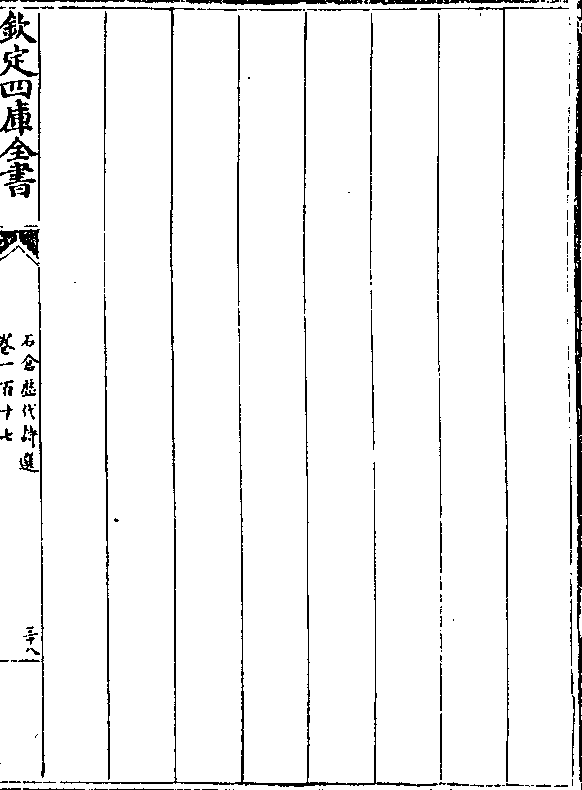 欽定四庫全書
石倉歴代詩選
卷一百十七
三十八